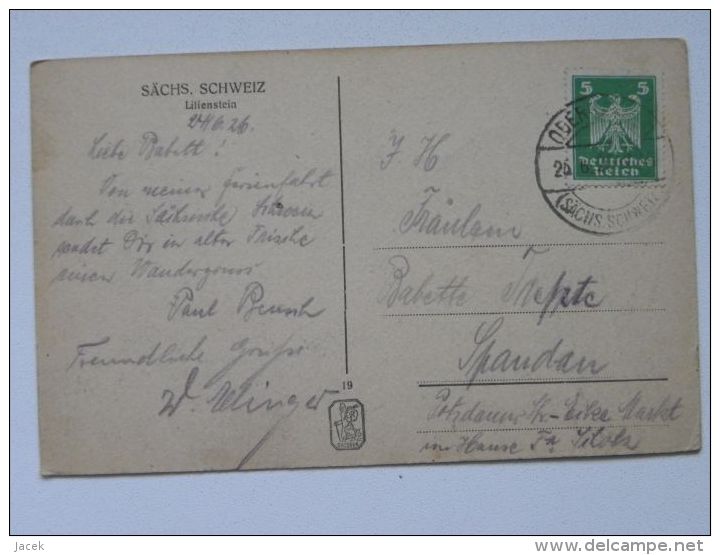 SÄCHS. SCHWEIZ
Lilienstein
24/6.26.
Liebe Babett!
Von meiner Ferienfahrt
durch die Sächsische
sendet Dir in alter Frische
einen Wandergruss
Paul
Freundliche Grüsse
W.
19
5 5
Deutsches
Reich
(SÄCHS. SCHWEIZ
Fräulein
Babette
Spandau
Potsdamer Str- Ecke Markt
im Hause Fa
Jacek
www.delcampe.net